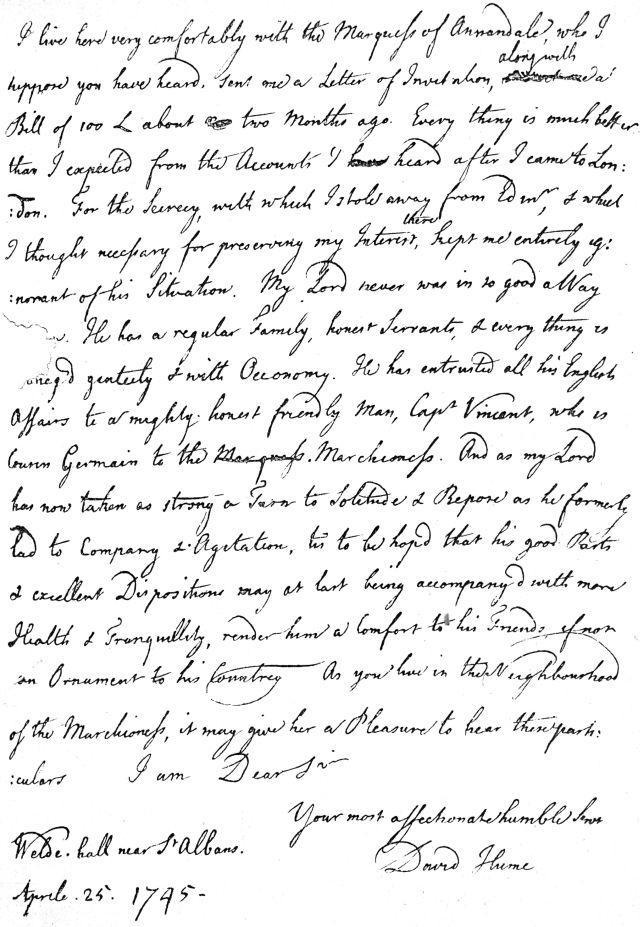 I live here very comfortably with the Marquess of Annandale, who I
suppose you have heard, sent me a Letter of Invitation, along with a
Bill of 100 L about two Months ago. Every thing is much better
than I expected from the Accounts I heard after I came to Lon:
:don. For the Secrecy, with which I stole away from Edinr, & which
I thought necessary for preserving my Interest there, kept me entirely ig:
:norant of his Situation. My Lord never was in so good a Way
He has a regular Family, honest Servants, & every thing is
aneg'd genteely & with Oeconomy. He has entrusted all his English
Affairs to a mighty honest friendly Man, Capt Vincent, who is
Cousin Germain to the Marquess. Marchioness. And as my Lord
has now taken as strong a Turn to Solitude & Repose as he formerly
had to Company & Agitation, tis to be hop'd that his good Parts
& excellent Dispositions may at last being accompany'd with more
Health & Tranquillity, render him a Comfort to his Friends if not
an Ornament to his Countrey As you live in the Neighbourhood
of the Marchioness, it may give her a Pleasure to hear these parti:
:culars I am Dear Sir
Your most affectionate humble Servt
David Hume
Welde-hall near St Albans.
Aprile. 25. 1745-